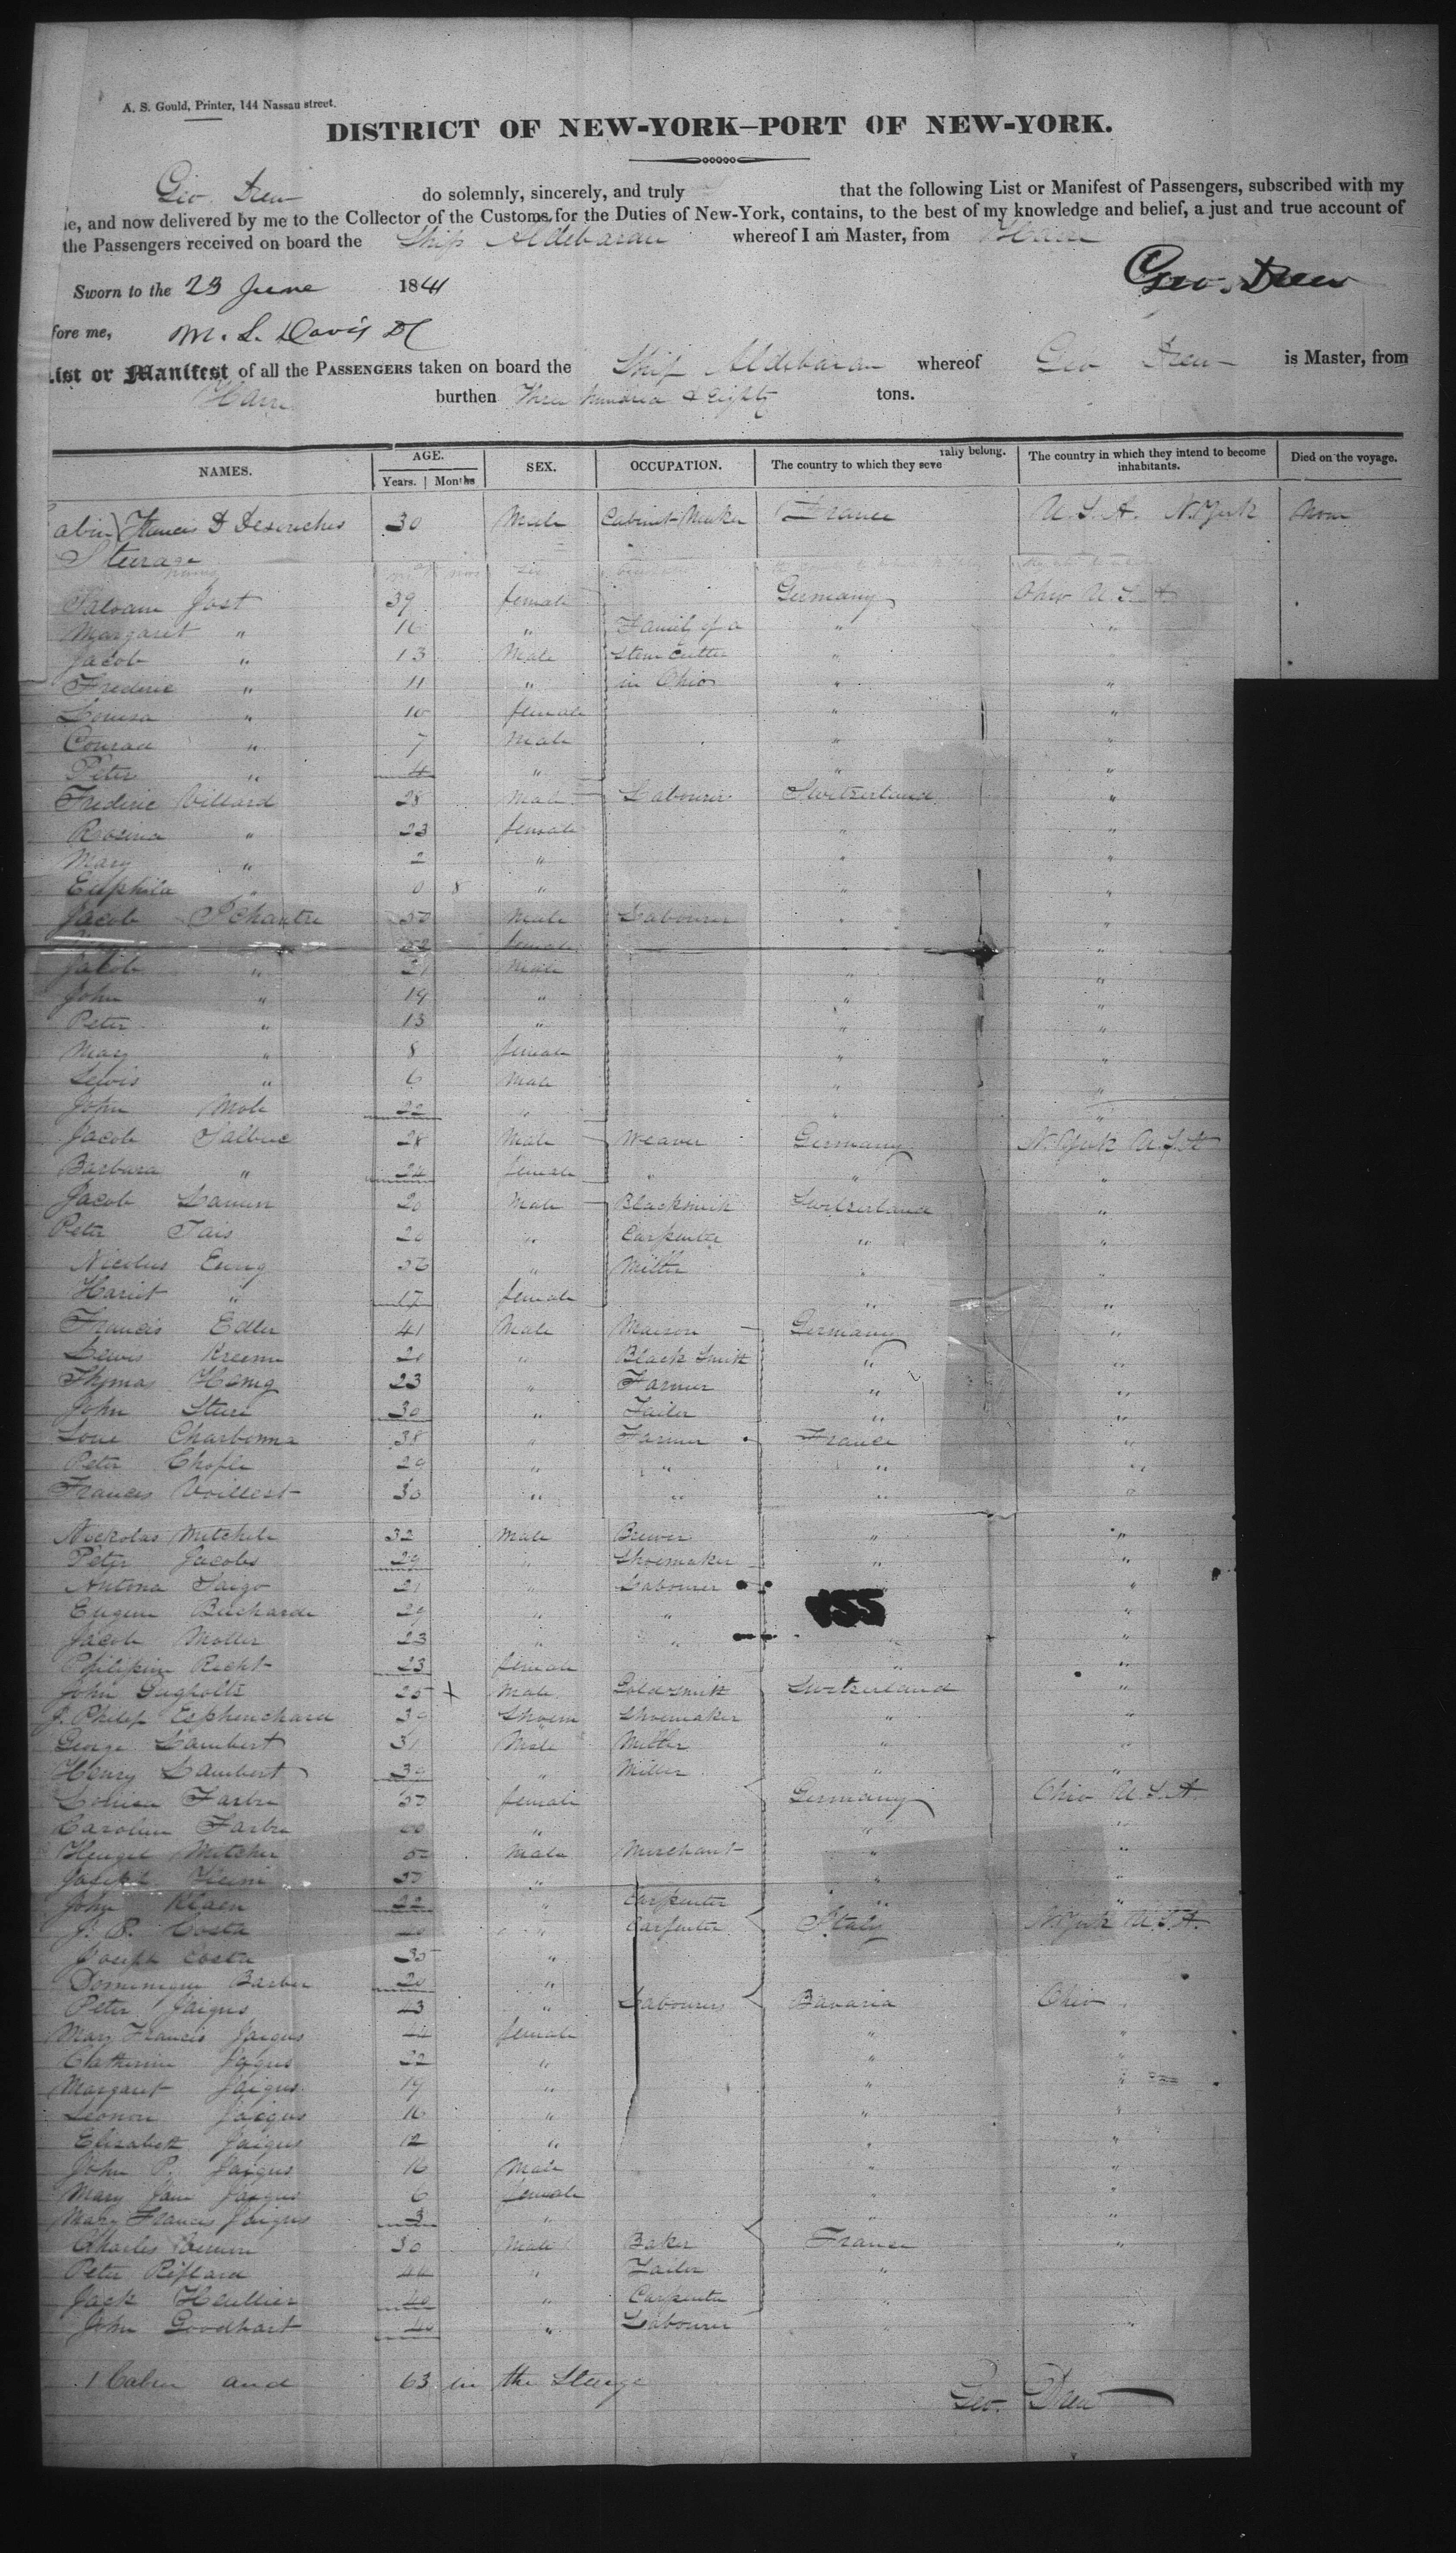 A. S. Gould, Printer, 144 Nassau street.
DISTRICT OF NEW-YORK—PORT OF NEW-YORK.
Geo. Drew do solemnly, sincerely, and truly that the following List or Manifest of Passengers, subscribed with my
e, and now delivered by me to the Collector of the Customs, for the Duties of New-York, contains, to the best of my knowledge and belief, a just and true account of
the Passengers received on board the Ship Aldebaran whereof I am Master, from Havre
Geo. Drew
Sworn to the 23 June 1841
fore me, M. L. Davis DC
List or Manifest of all the PASSENGERS taken on board the Ship Aldebaran whereof Geo Drew is Master, from
Havre burthen Three hundred & Eighty tons.
NAMES. AGE. Years. Months SEX. OCCUPATION. The country to which they severally belong. The country in which they intend to become inhabitants. Died on the voyage.
abin Francis D Desouches 30 Male Cabinet Maker France U.S.A. N.York None
Steerage
Jost 39 female Germany Ohio U.S.A
Margaret " 16 " Family of a " "
Jacob " 13 Male Stone Cutter " "
Frederic " 11 " in Ohio " "
Louisa " 10 female " "
Conrad " 7 Male " "
Peter " 4 " " "
Frederic Villard 28 Male Labourer Switzerland "
Rosina " 23 female " "
Mary " 2 " " "
Euphila " 0 8 " " "
Jacob Male Labourer " "
female " "
Jacob " 21 Male " "
John " 19 " " "
Peter " 13 " " "
Mary " 8 female " "
Lewis " 6 Male " "
John Mole 22 " " "
Jacob Salbue 28 Male Weaver Germany N.York U.S.A
Barbara " 24 female " " "
Jacob 20 Male Blacksmith Switzerland "
Peter Tais 20 " Carpenter " "
Nicolus Eung " Miller " "
Hariet " 17 female " "
Francis Edler 41 Male Maison Germany "
Lewis 20 " Black Smith " "
Thomas Hamg 23 " Farmer " "
John 30 " Tailer " "
Loui Charbonna 38 " Farmer France "
Peter Chofle 29 " " " "
Francis Voillest 30 " " " "
Nickolas Mitchele 32 Male Brewer " "
Peter Jacobs 29 " Shoemaker " "
Antona Saigo 21 " Labourer "
Eugene 29 " " "
155
Jacob Moller 23 " " " "
Philipine Richt 23 female " "
John 25 + Male Goldsmith Switzerland "
J. Philip Esphenchard 39 Shoem Shoemaker " "
George Lambert 31 Male Miller " "
Henry Lambert 39 " Miller " "
Louisa Farbe female Germany Ohio U.S.A.
Caroline Farbe " " "
Mitcher Male Merchant " "
Joseph Heini " " "
John Klaen 22 " Carpenter " "
J. B. Costa " Carpenter Italy N.York U.S.A.
Joseph Costa 35 "
Dominique Barber 20 "
Peter Jaigus 43 " Labourers Bavaria Ohio
Mary Francis Jaigus female " "
Chatherine Jaigus 22 " " "
Margaret Jaigus 19 " " "
Leonore Jaigus 16 " " "
Elizabeth Jaigus 12 " " "
John P. Jaigus 16 Male " "
Mary Jane Jaigus 6 female " "
Mary Francis Jaigus 3 " " "
Charles 30 Male Baker France "
Peter Riflard " Tailer "
Jack Heullier " Carpenter "
John Goodhart " Labourer " "
1 Cabin and 63 in the Steerge
Geo. Drew